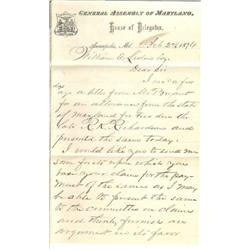 General Assembly of Maryland,
House of Delegates,
Annapolis, Md. Feb 22d 1874
William E. Esq.
Dear Sir
I rec'd a few
days ago a letter from Mr. Bryant
for an allowance from the State
of Maryland for fees due the
late R.R. Richardson and
presented the same today.
I would like you to send me
some facts upon which you
base your claims for the pay-
ment of the same as I may
be able to present the same
to the committee on claims
and thereby furnish an
argument in its favor